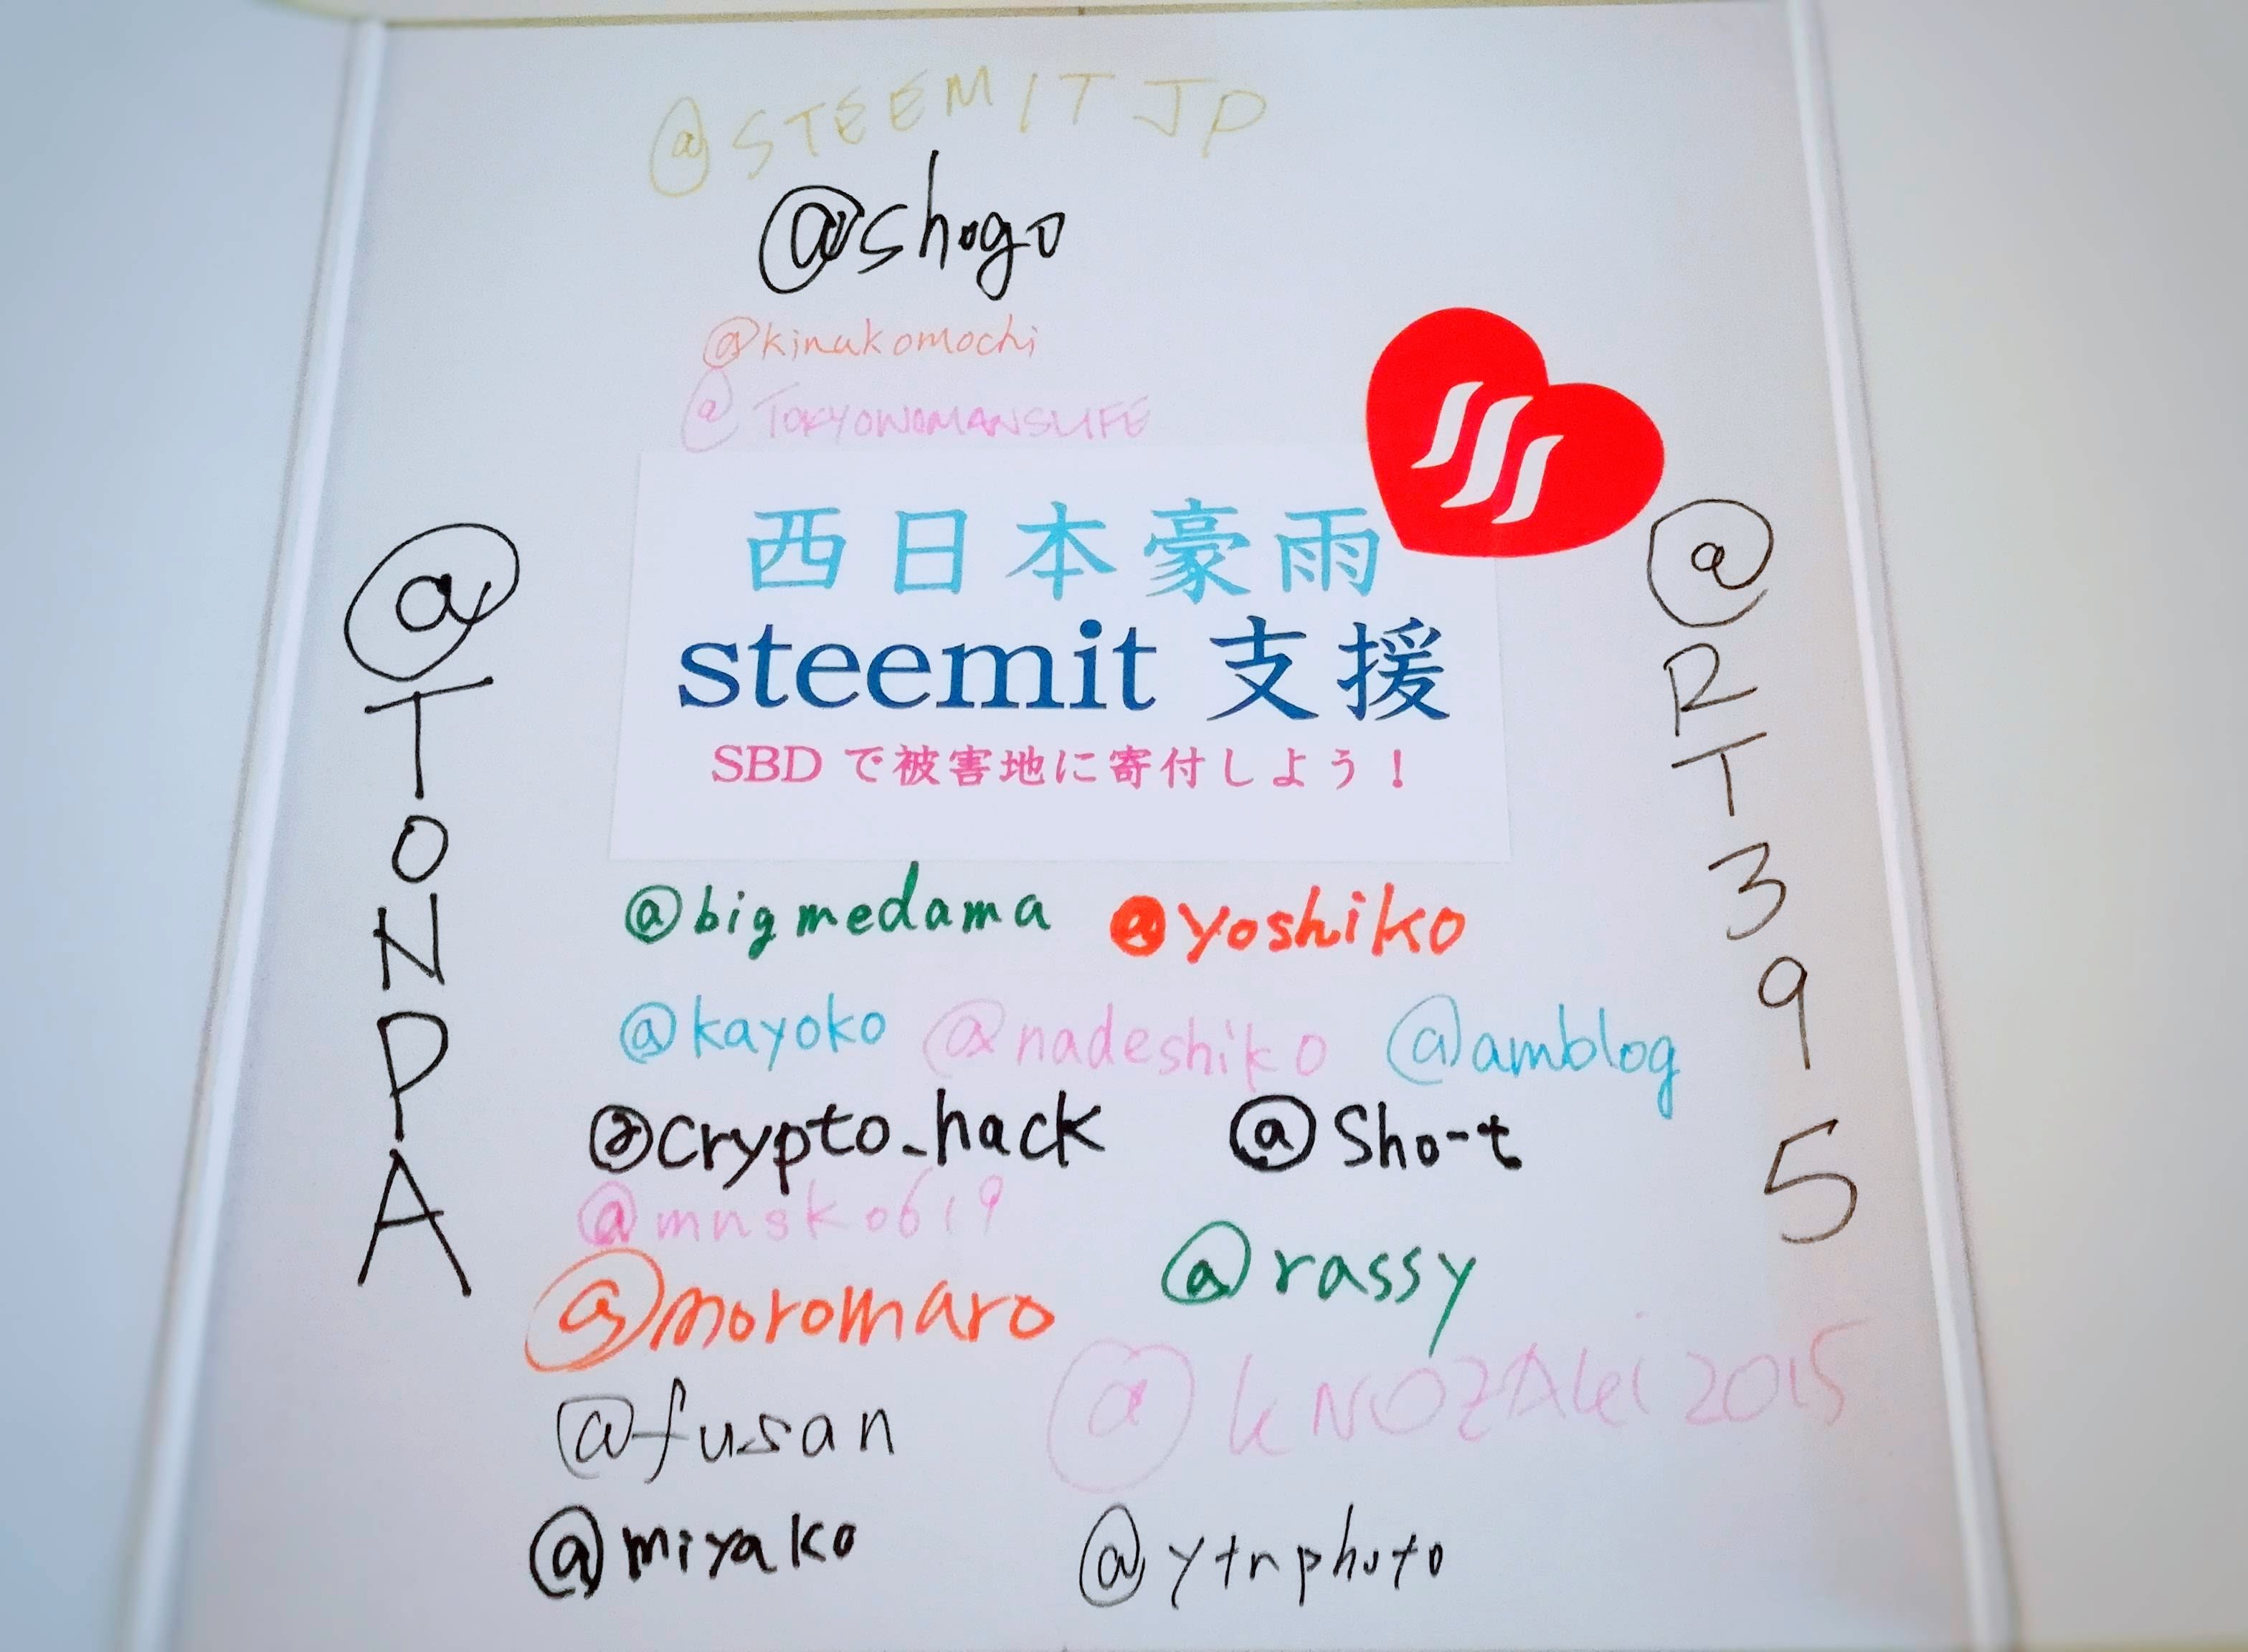 @STEEMITJP
@shogo
@kinakomochi
@TOKYOWOMANSLIFE
西日本豪雨
steemit 支援
SBDで被害地に寄付しよう！
@TONPA
@RT395
@bigmedama @yoshiko
@kayoko @nadeshiko @amblog
@Crypto_hack @Sho-t
@mnsko619
@noromaro @rassy
@fusan @kNOZAki2015
@miyako @ytnphoto